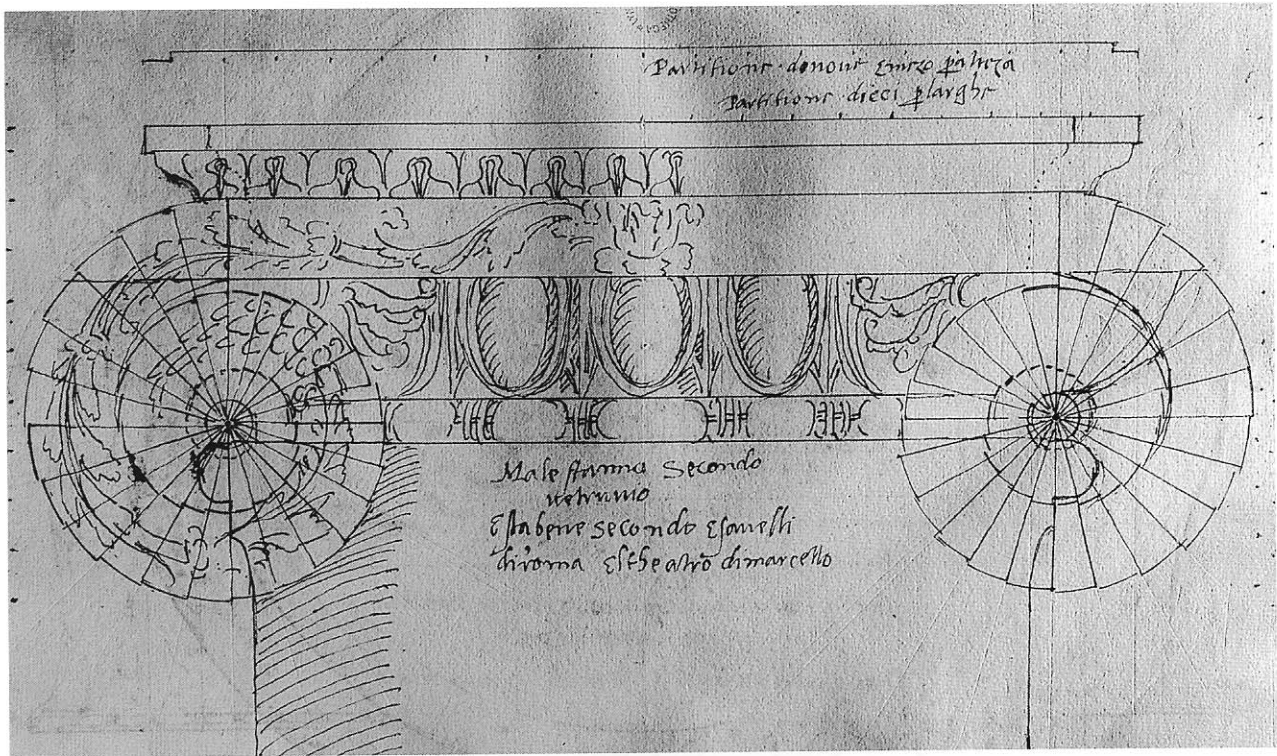 Partitione donove e mezo p alteza
Partitione dieci p larghe
Male stanno secondo
vetruvio
Esta bene secondo Esavelli
diroma Eltheatro dimarcello